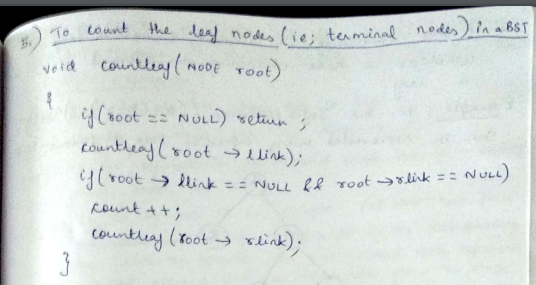 5.) To count the leaf nodes (ie; terminal nodes) in a BST
void countleaf (NODE root)
{
if (root == NULL) return ;
countleaf (root → llink);
if (root → llink == NULL && root → rlink == NULL)
count ++;
countleaf (root → rlink);
}